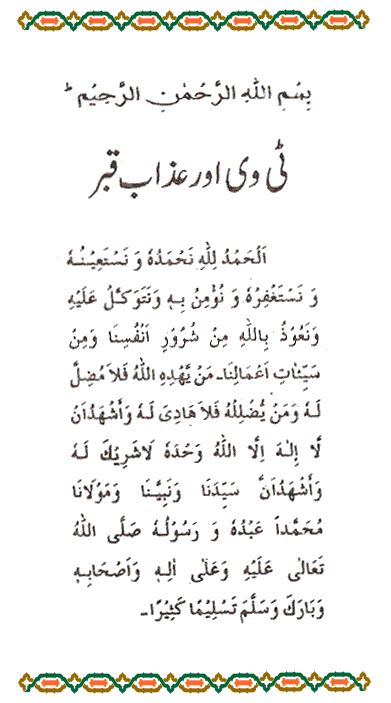 بِسْمِ اللهِ الرَّحْمٰنِ الرَّحِيْمِ ط
ٹی وی اور عذاب قبر
اَلْحَمْدُ لِلّٰهِ نَحْمَدُهٗ وَ نَسْتَعِيْنُهٗ
وَ نَسْتَغْفِرُهٗ وَ نُؤْمِنُ بِهٖ وَنَتَوَكَّلُ عَلَيْهِ
وَنَعُوْذُ بِاللّٰهِ مِنْ شُرُوْرِ اَنْفُسِنَا وَمِنْ
سَيِّئٰاتِ اَعْمَالِنَا۔ مَنْ يَّهْدِهِ اللّٰهُ فَلاَ مُضِلَّ
لَهٗ وَمَنْ يُّضْلِلْهُ فَلاَ هَادِىَ لَهٗ وَأَشْهَدُاَنْ
لَّا إِلٰهَ اِلَّا اللّٰهُ وَحْدَهٗ لَاشَرِيْكَ لَهٗ
وَأَشْهَدُاَنَّ سَيِّدَنَا وَنَبِيَّنَا وَمَوْلَانَا
مُحَمَّداً عَبْدُهٗ وَ رَسُوْلُهٗ صَلَّى اللّٰهُ
تَعَالٰى عَلَيْهِ وَعَلٰى اٰلِهٖ وَاَصْحَابِهٖ
وَبَارَكَ وَسَلَّمَ تَسْلِيْمًا كَثِيْرًا۔